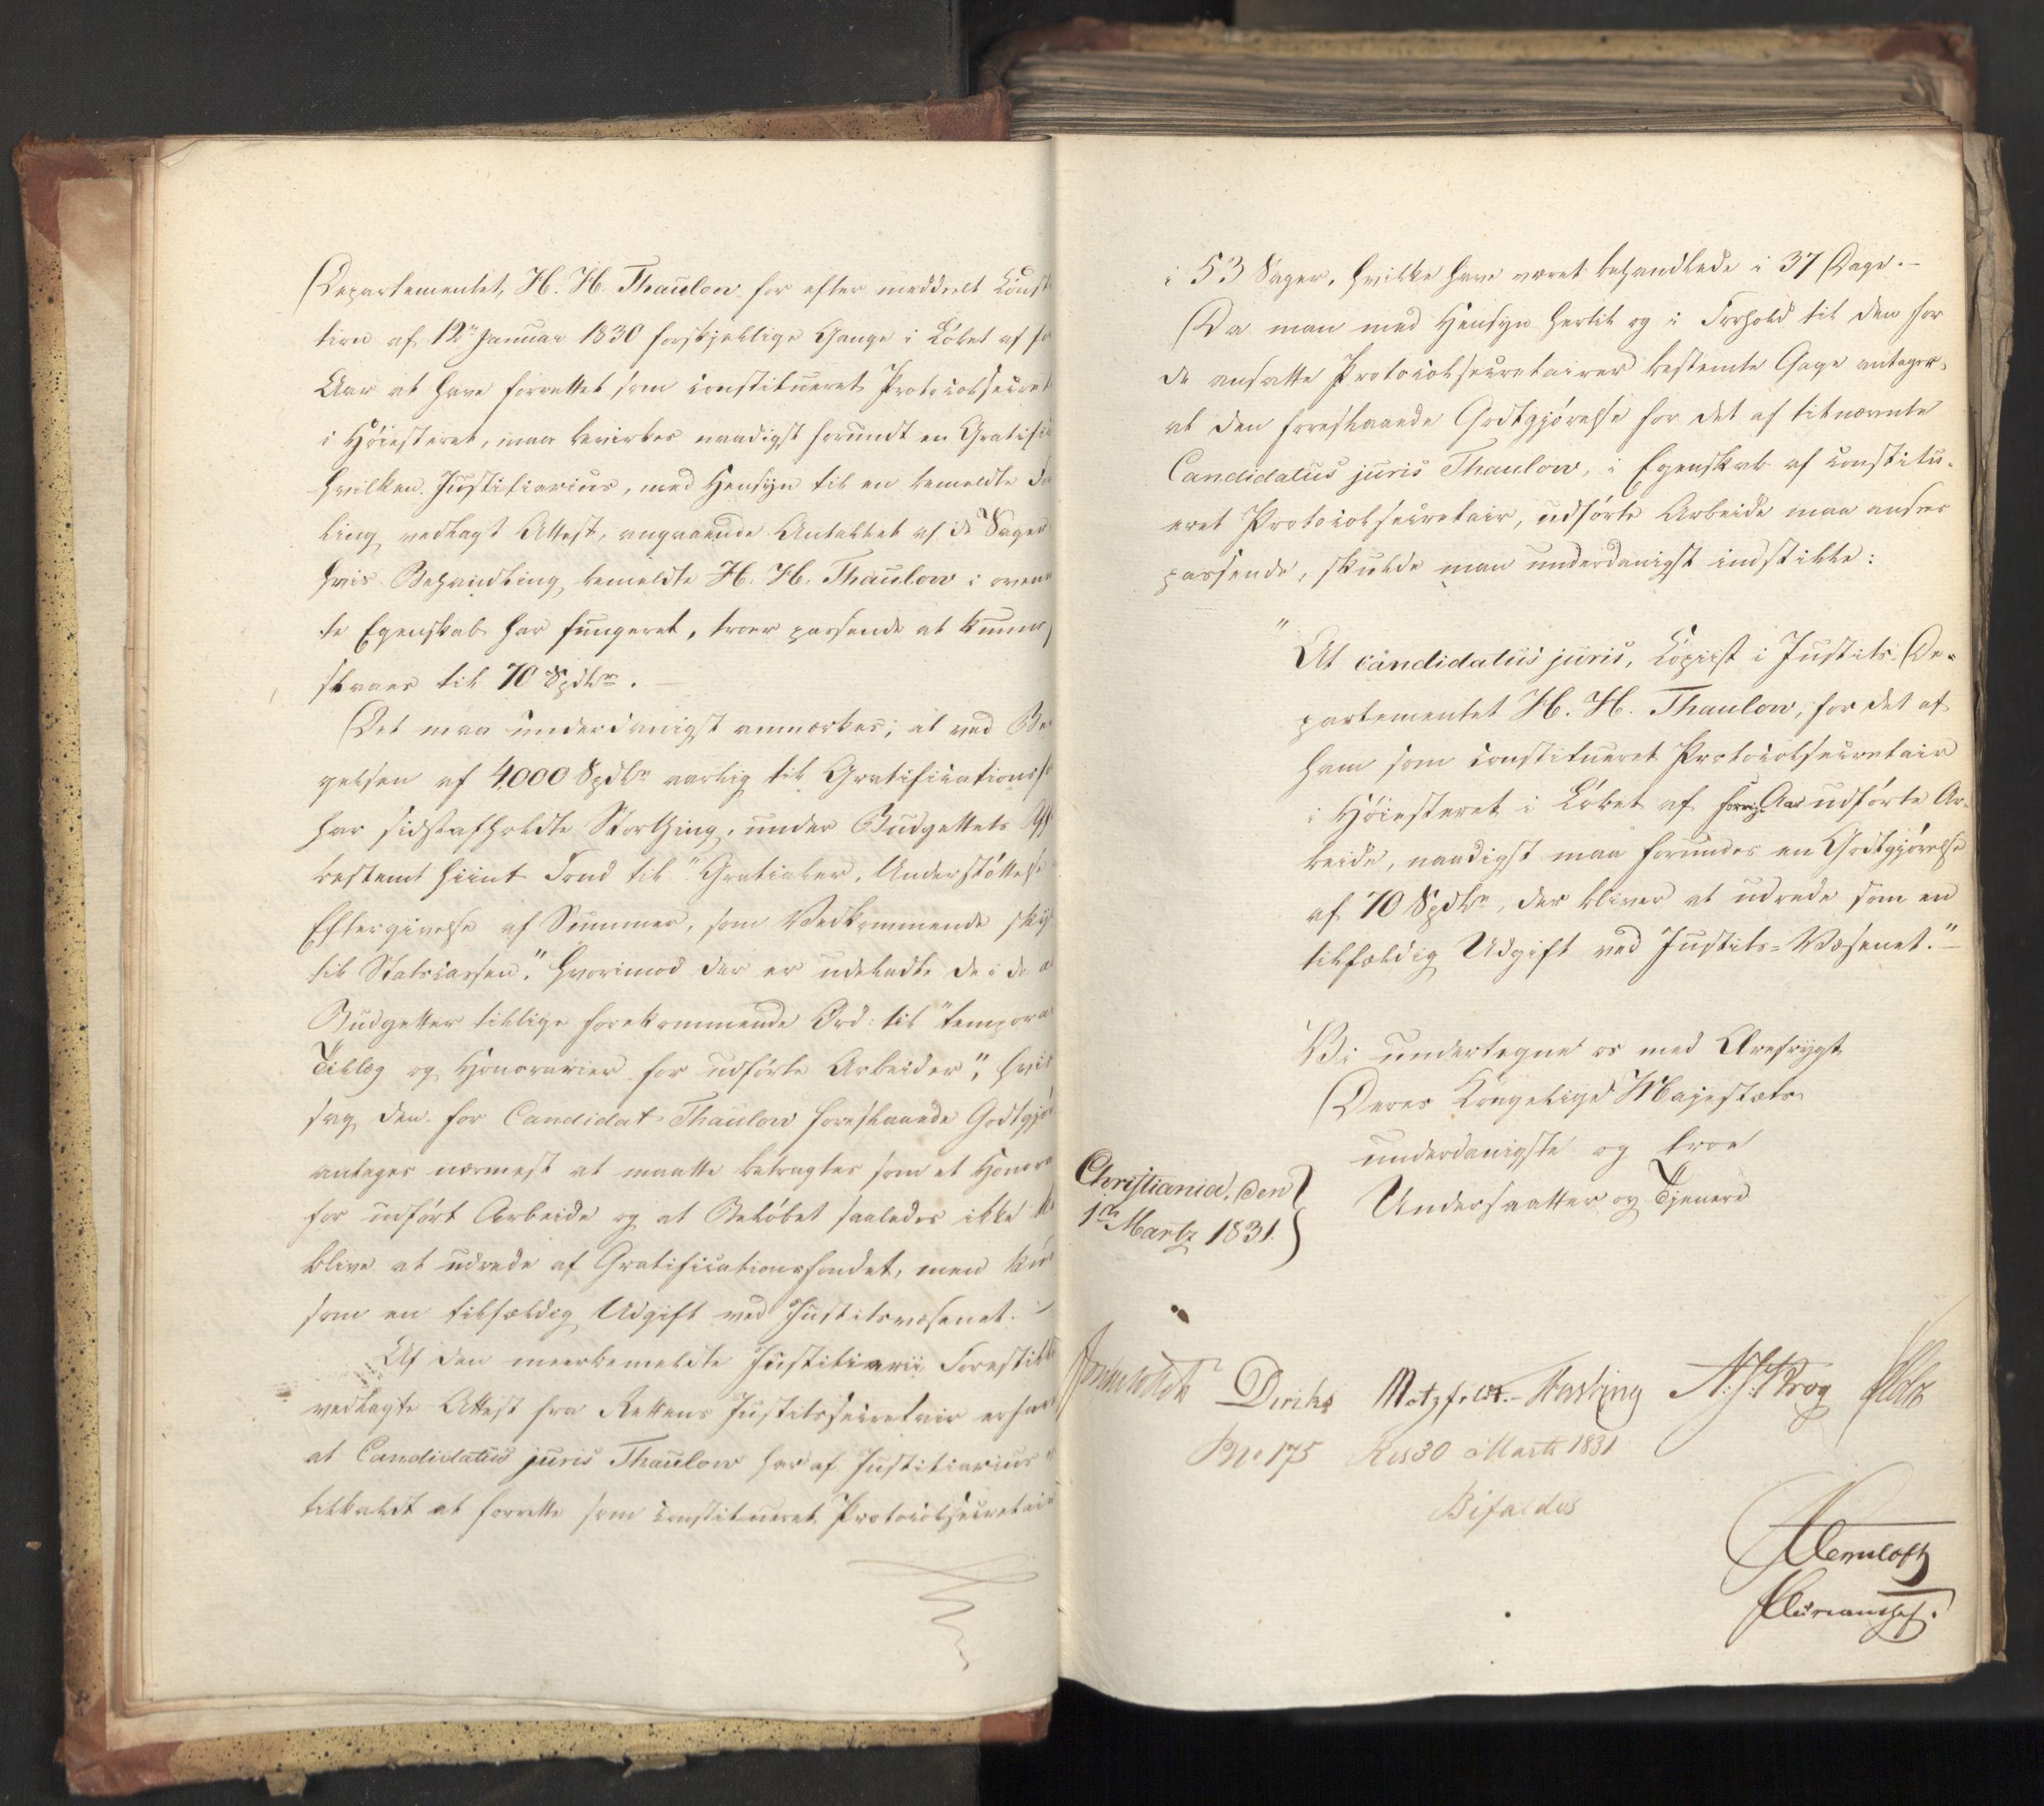 Departementet, H. H. Thaulow for efter meddeelt Const
tion af 12te Januar 1830 forskjellige Gange i Løbet af f
Aar at have forrettet som constitueret Protocolsecret
i Høiesteret, maa bevirkes naadigst forundt en Gratific
hvilken Justitiarius, med Hensyn til en bemeldte
ling vedlagt Attest, angaaende Antallet af de Sager
hvis Behandling bemeldte H. H. Thaulow i oven
te Egenskab har fungeret, troer passende at kunne
slaaes til 70 Spdlr.
Det maa underdanigst anmærkes, at ved Be
gelsen af 4000 Spdlr aarlig til Gratificationsf
har sidstafholdte Storthing, under Budgettets
bestemt hiint Fond til "Gratialer, Understøttelse
Eftergivelse af Summer, som Vedkommende sky
til Statscassen", hvorimod der er udeladt de i de
Budgetter tillige forekommende Ord: til "tempora
Tillæg og Honorarier for udførte Arbeider",
den for Candidat Thaulow foreslaaede Godtgjø
antages nærmest at maatte betragtes som et Honora
for udført Arbeide og at Beløbet saaledes ikke
blive at udrede af Gratificationsfondet, men
som en tilfældig Udgift ved Justitsvæsenet.
Af den meerbemeldte Justitiarii Forestil
vedlagte Attest fra Rettens Justitssecretair erfar
at Candidatus juris Thaulow har af Justitiarius
tilkaldt at forrette som constitueret Protocolsecretair
i 53 Sager, hvilke have været behandlede i 37 Dage.
Da man med Hensyn hertil og i Forhold til den for
de ansatte Protocolsecretairer bestemte Gage antager,
at den foreslaaede Godtgjørelse for det af bitnævnte
Candidatus juris Thaulow, i Egenskab af constitu-
eret Protocolsecretair, udførte Arbeide maa ansees
passende, skulde man underdanigst indstille:
"At candidatus juris, Copiist i Justits-De-
partementet H. H. Thaulow, for det af
ham som constitueret Protocolsecretair
i Høiesteret i Løbet af forrige Aar udførte Ar-
beide, naadigst maa forundes en Godtgjørelse
af 70 Spdlr, der bliver at udrede som en
tilfældig Udgift ved Justits-Væsenet."
Vi undertegne os med Ærefrygt
Deres Kongelige Majestæts
underdanigste og troe
Undersaatter og Tjenere
Christiania, den
1ste Martz 1831.
Diriks Motzfeldt Fasting
No 175 Res 30 Marts 1831
Bifaldes